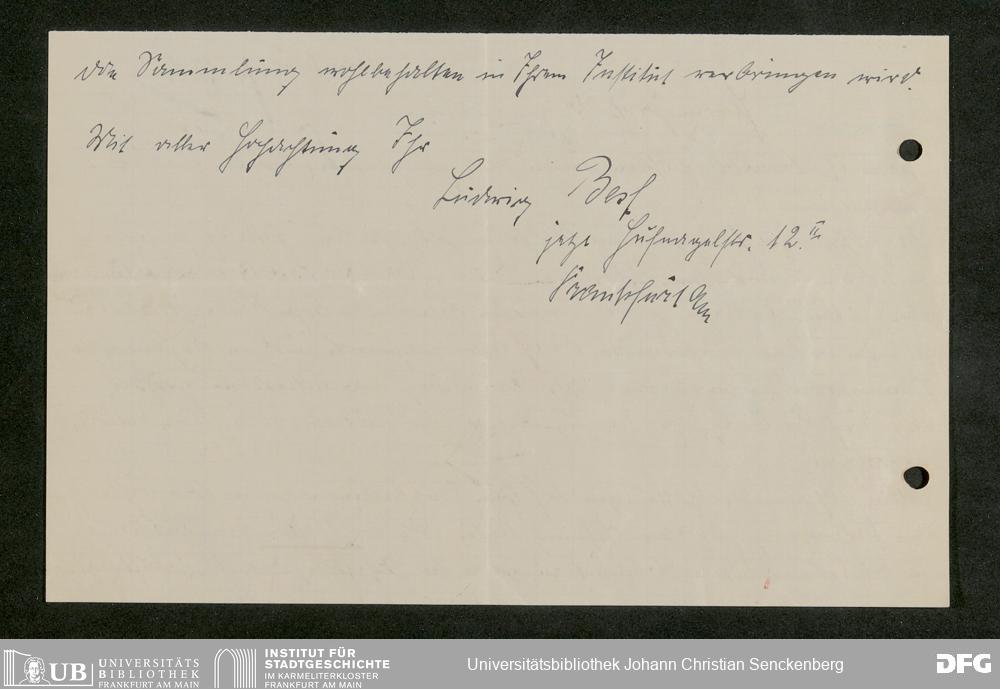 die Sammlung wohlbehalten in Ihrem Institut verbringen wird.
Mit aller Hochachtung Ihr
Ludwig
jetzt Hufnagelstr. 12.II
Frankfurt a/M
UB
UNIVERSITÄTS
BIBLIOTHEK
FRANKFURT AM MAIN
INSTITUT FÜR
STADTGESCHICHTE
IM KARMELITERKLOSTER
FRANKFURT AM MAIN
Universitätsbibliothek Johann Christian Senckenberg
DFG